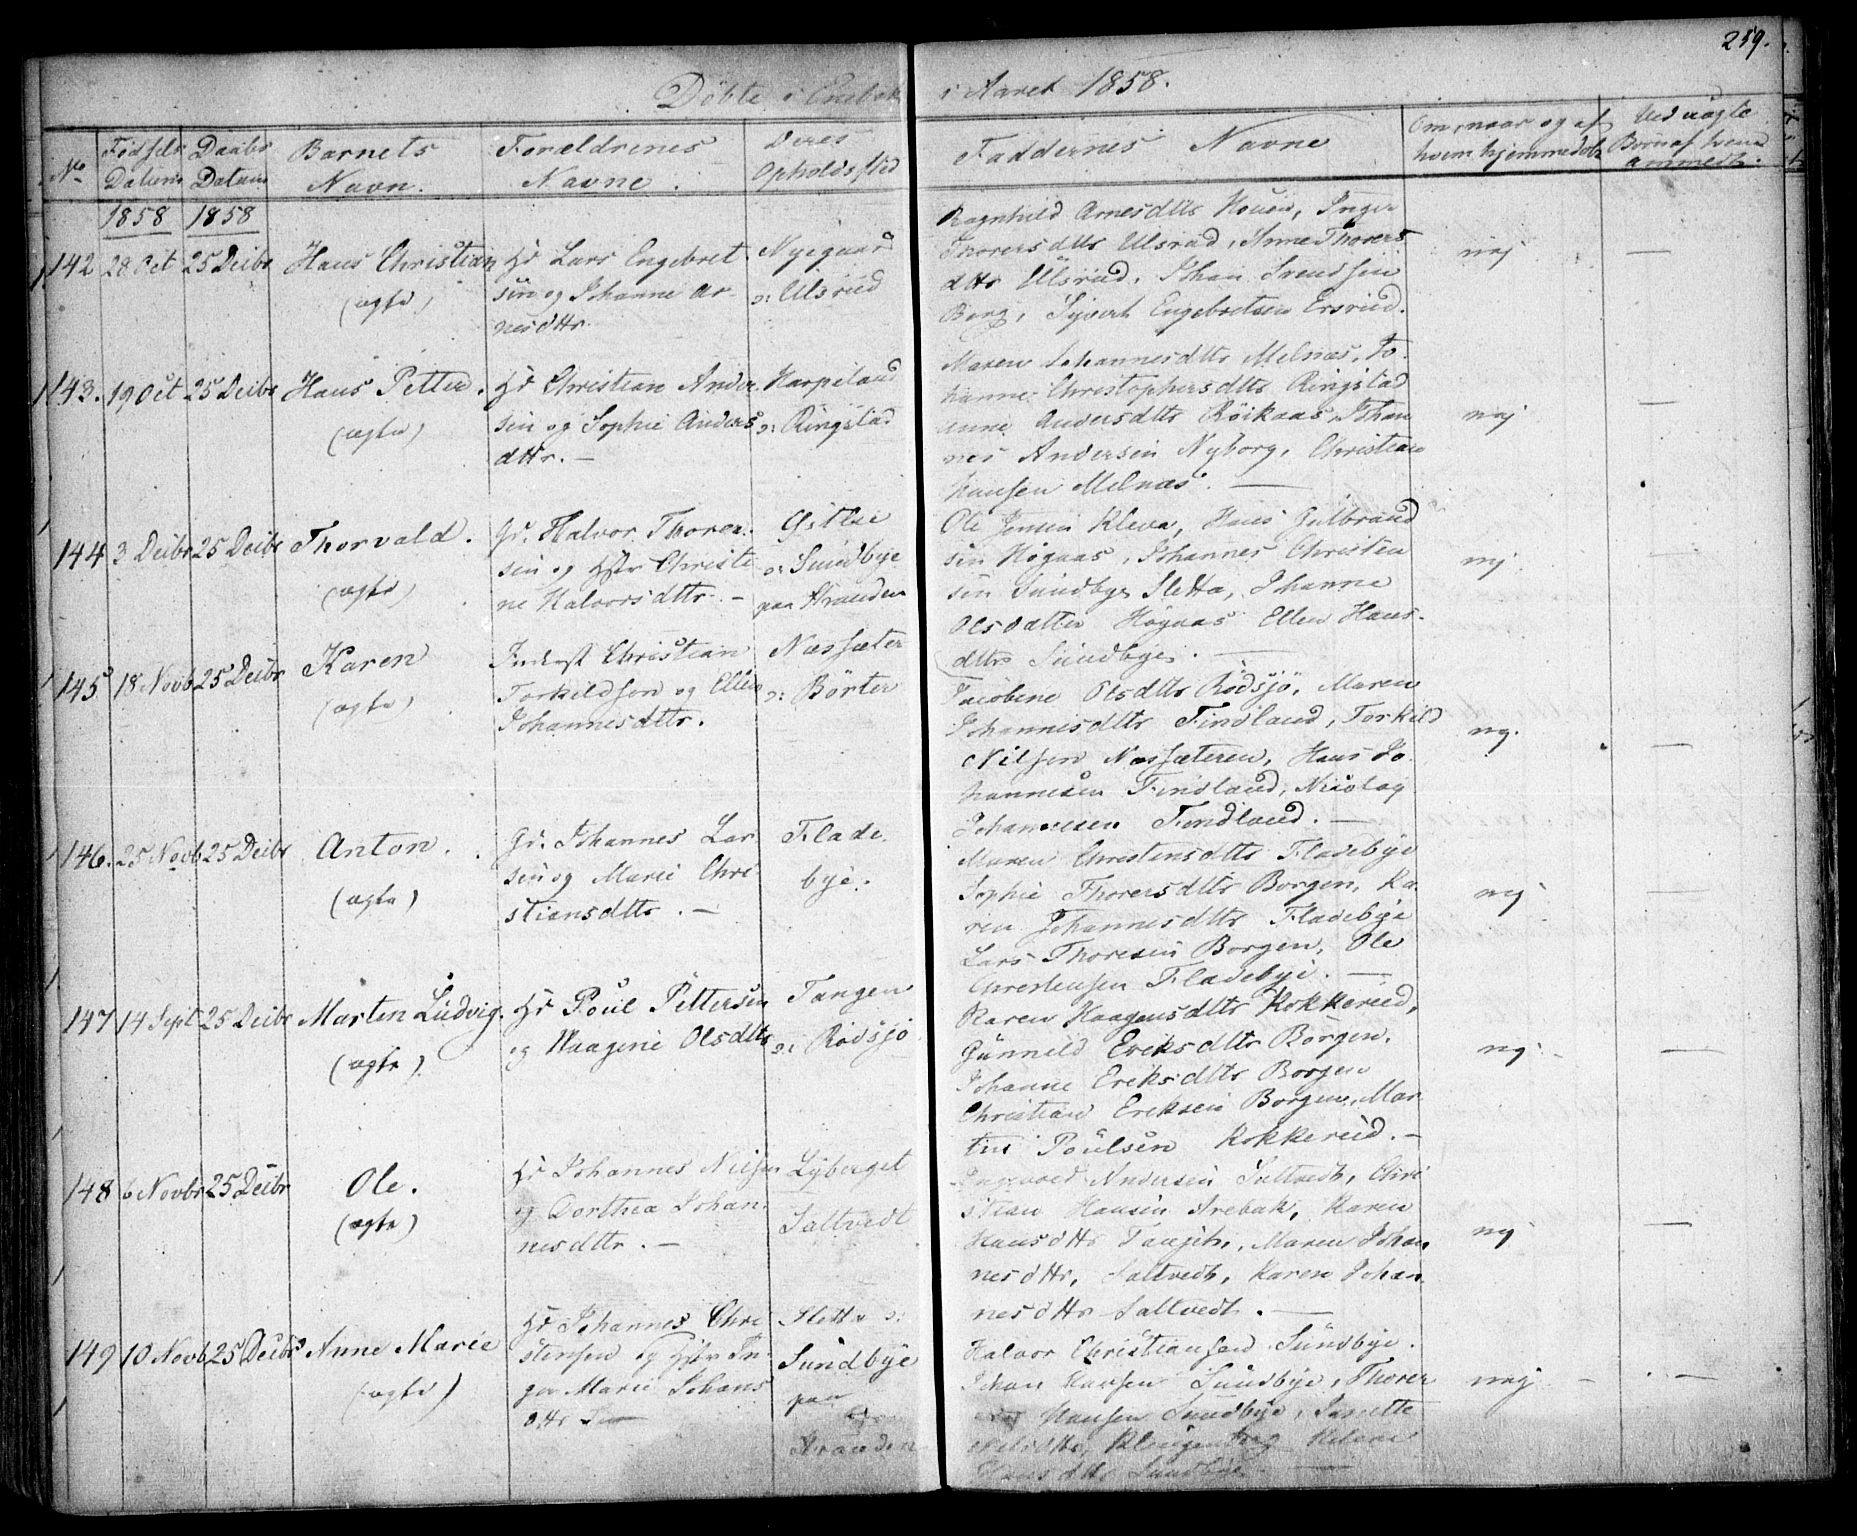 259.
Døbte i Enebak i Aaret 1858.
No
Fødsels Datum
Daabs Datum
Barnets Navn.
Forældrenes Navne.
Deres Opholdssted
Faddernes Navne
Om, naar og af hvem hjemmedøbt
Ved uægte Børn af hvem ammet.
1858 1858
142 28 Oct 25 Decbr Hans Christian
(ægte)
Hr Lars Engebret
sen og Johanne Ar
nesdttr.
Nyegaard
o: Ulsrud
Ragnhild Arnesdttr Inger
Thorersdttr Ulsrud, Anne Thorers
dttr Ulsrud, Johan Svendsen
Berg, Syvert Engebretsen Ersrud.
nej —
143. 19 Oct 25 Decbr Hans Petter.
(ægte)
Hr Christian Ander
sen og Sophie Anders
dttr. —
Harpeland
o: Ringstad
Maren Johannesdttr Melnæs, Jo
hanne Christophersdttr Ringstad
Anne Andersdttr Röikaas, Johan
nes Andersen Nyborg, Christian
Hansen Melnæs. —
nej —
144 3 Decbr 25 Decbr Thorvald.
(ægte)
Gr. Halvor Thorer
sen og Hstr Christi
ne Halvorsdttr. —
Østbye
o: Sundbye
paa Stranden
Ole Jensen Kleva, Hans Gulbrand
sen Høgaas, Johannes Christen
sen Sundbye Sletta, Johanne
Olsdatter Høgaas Ellen Hans
dttr Sundbye. —
nej —
145 18 Novb 25 Decbr Karen
(ægte)
Inderst Christian
Torkildson og Ellen
Johannesdttr.
Næssæter
o: Börter
Jacobine Olsdttr Rödsjö, Maren
Johannesdttr Findland, Torkild
Nilsen Næssæteren, Hans Jo
hannesen Findland, Nicolay
Johannesen Findland. —
nej. —
146. 25 Novb 25 Decbr Anton.
(ægte)
Gr. Johannes Lar
sen og Marie Chri
stiansdttr. —
Flade
bye.
Maren Christensdttr Fladebye
Sophie Thorersdttr Borgen, Ka
ren Johannesdttr Fladebye
Lars Thoresen Borgen, Ole
Christensen Fladebye. —
nej —
147 14 Sept 25 Decbr Marten Ludvig.
(ægte)
Hr Poul Pettersen
og Haagine Olsdttr
Tangen
o: Rödsjö
Karen Haagensdttr Kokkerud,
Gunnild Eriksdttr Borgen.
Johanne Eriksdttr Borgen
Christian Eriksen Borgen, Mar
tin Poulsen Kokkerud. —
nej —
148 6 Novbr 25 Decbr Ole.
(ægte)
Hr Johannes Nilsen
og Dorthea Johan
nesdttr. —
Lyberget
Saltvedt
Andersen Saltvedt, Chri
stian Hansen Arebak, Karen
Hansdttr Maren Johan
nesdttr, Saltvedt, Karen Johan
nesdttr Saltvedt. —
nej —
149 10 Novb 25 Decbr Anne Marie
(ægte)
Hr Johannes Chri
stensen og Hstr In
ger Marie Johans
dttr
Sletta o:
Sundbye
paa
Stranden
Halvor Christiansen Sundbye.
Johan Hansen Sundbye, Thorer
Hansen Sundbye,
Klingenberg
Hansdttr Sundbye. —
nej —